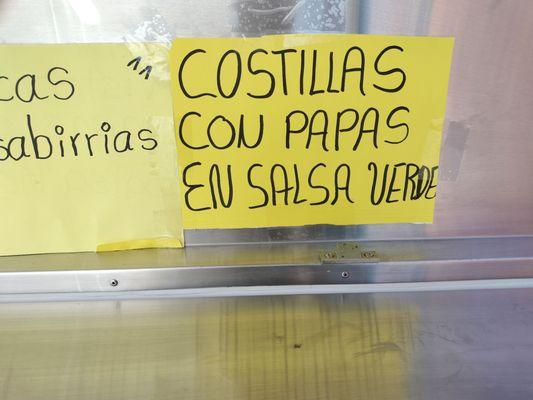 cas "
sabirrias
COSTILLAS
CON PAPAS
EN SALSA VERDE